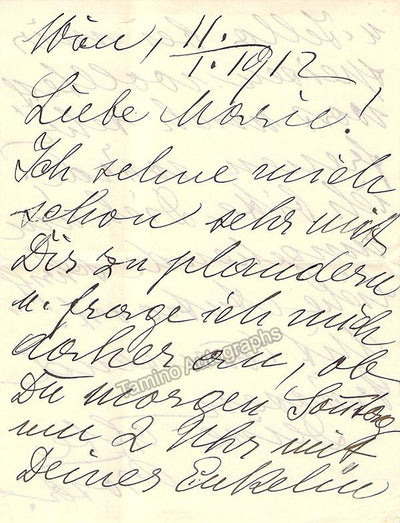 Wien, 11./1. 1912
Liebe Marie!
Ich sehne mich
schon sehr mit
Dir zu plaudern
u. frage ich mich
daher an, ob
Du morgen Sonntag
um 2 Uhr mit
Deiner Enkelin
Tamino Autographs